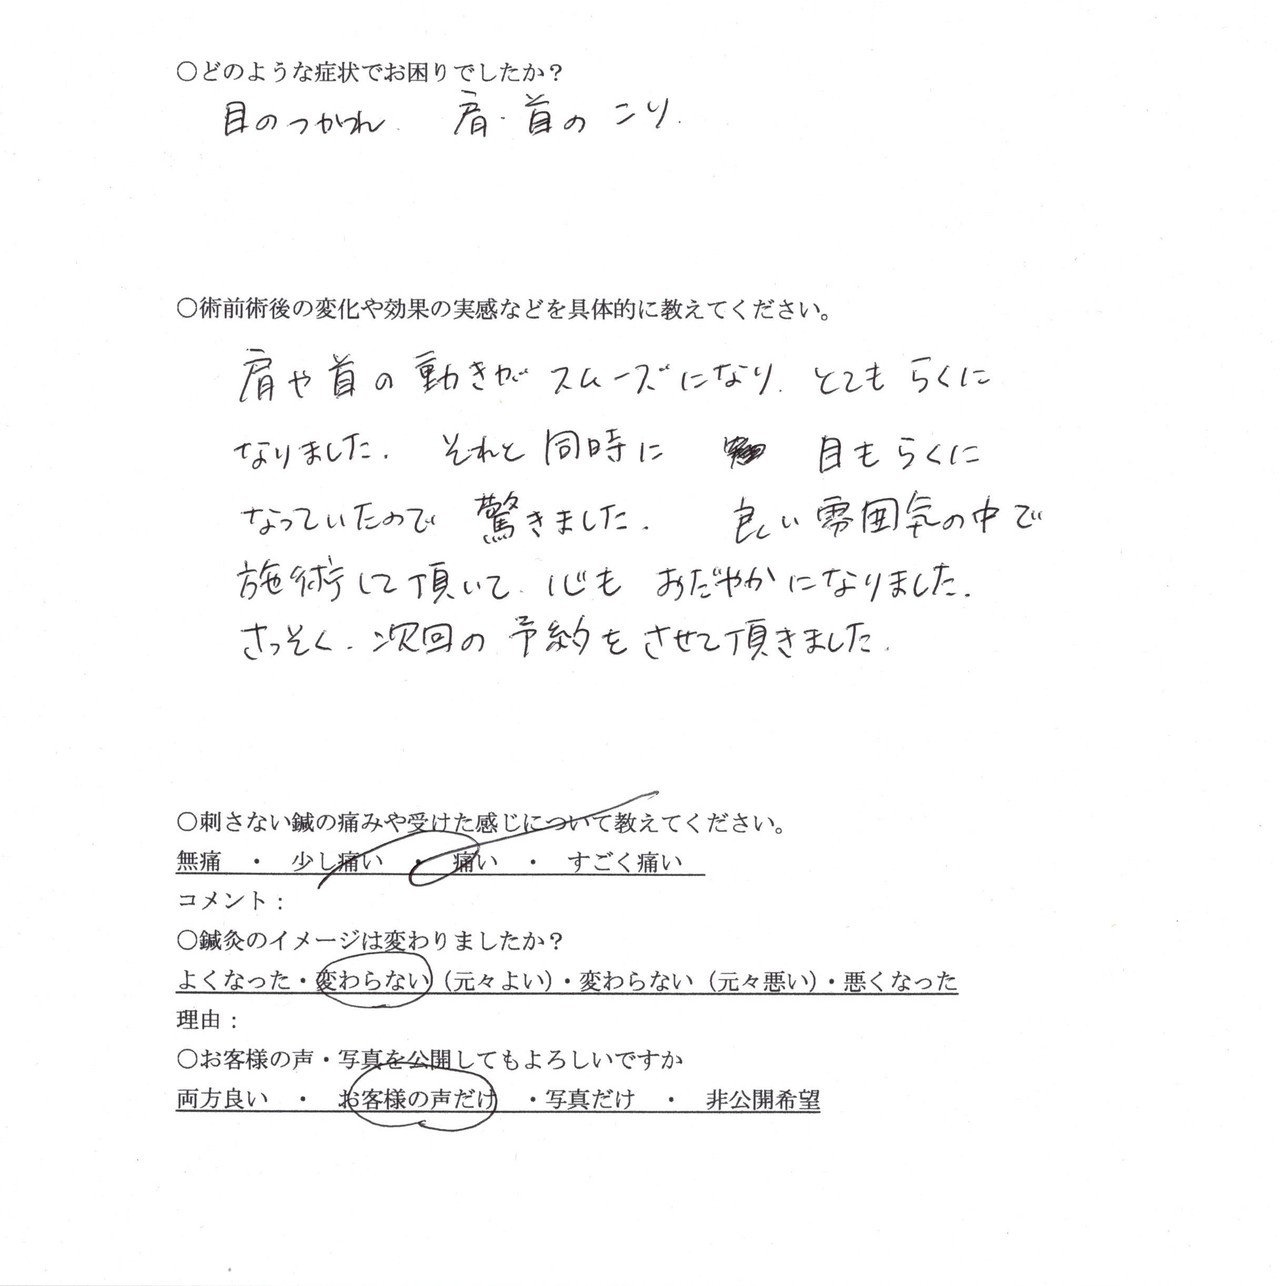 ○どのような症状でお困りでしたか？
目のつかれ. 肩・首の こり.
○術前術後の変化や効果の実感などを具体的に教えてください。
肩や首の動きがスムーズになり. とてもらくに
なりました. それと同時に 目もらくに
なっていたので 驚きました. 良い雰囲気の中で
施術して頂いて. 心も おだやかになりました.
さっそく. 次回の予約をさせて頂きました.
○刺さない鍼の痛みや受けた感じについて教えてください。
無痛 ・ 少し痛い ・ 痛い ・ すごく痛い
コメント：
○鍼灸のイメージは変わりましたか？
よくなった・変わらない（元々よい）・変わらない（元々悪い）・悪くなった
理由：
○お客様の声・写真を公開してもよろしいですか
両方良い ・ お客様の声だけ ・写真だけ ・ 非公開希望